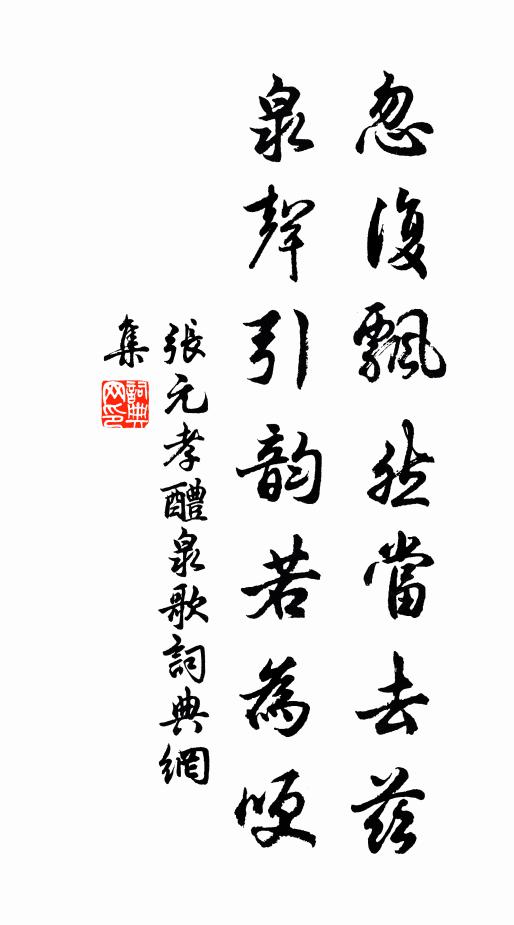 忽復飄然當去茲
泉聲引韵若為哽
張元孝醴泉歌詞典網
集
詞典網印